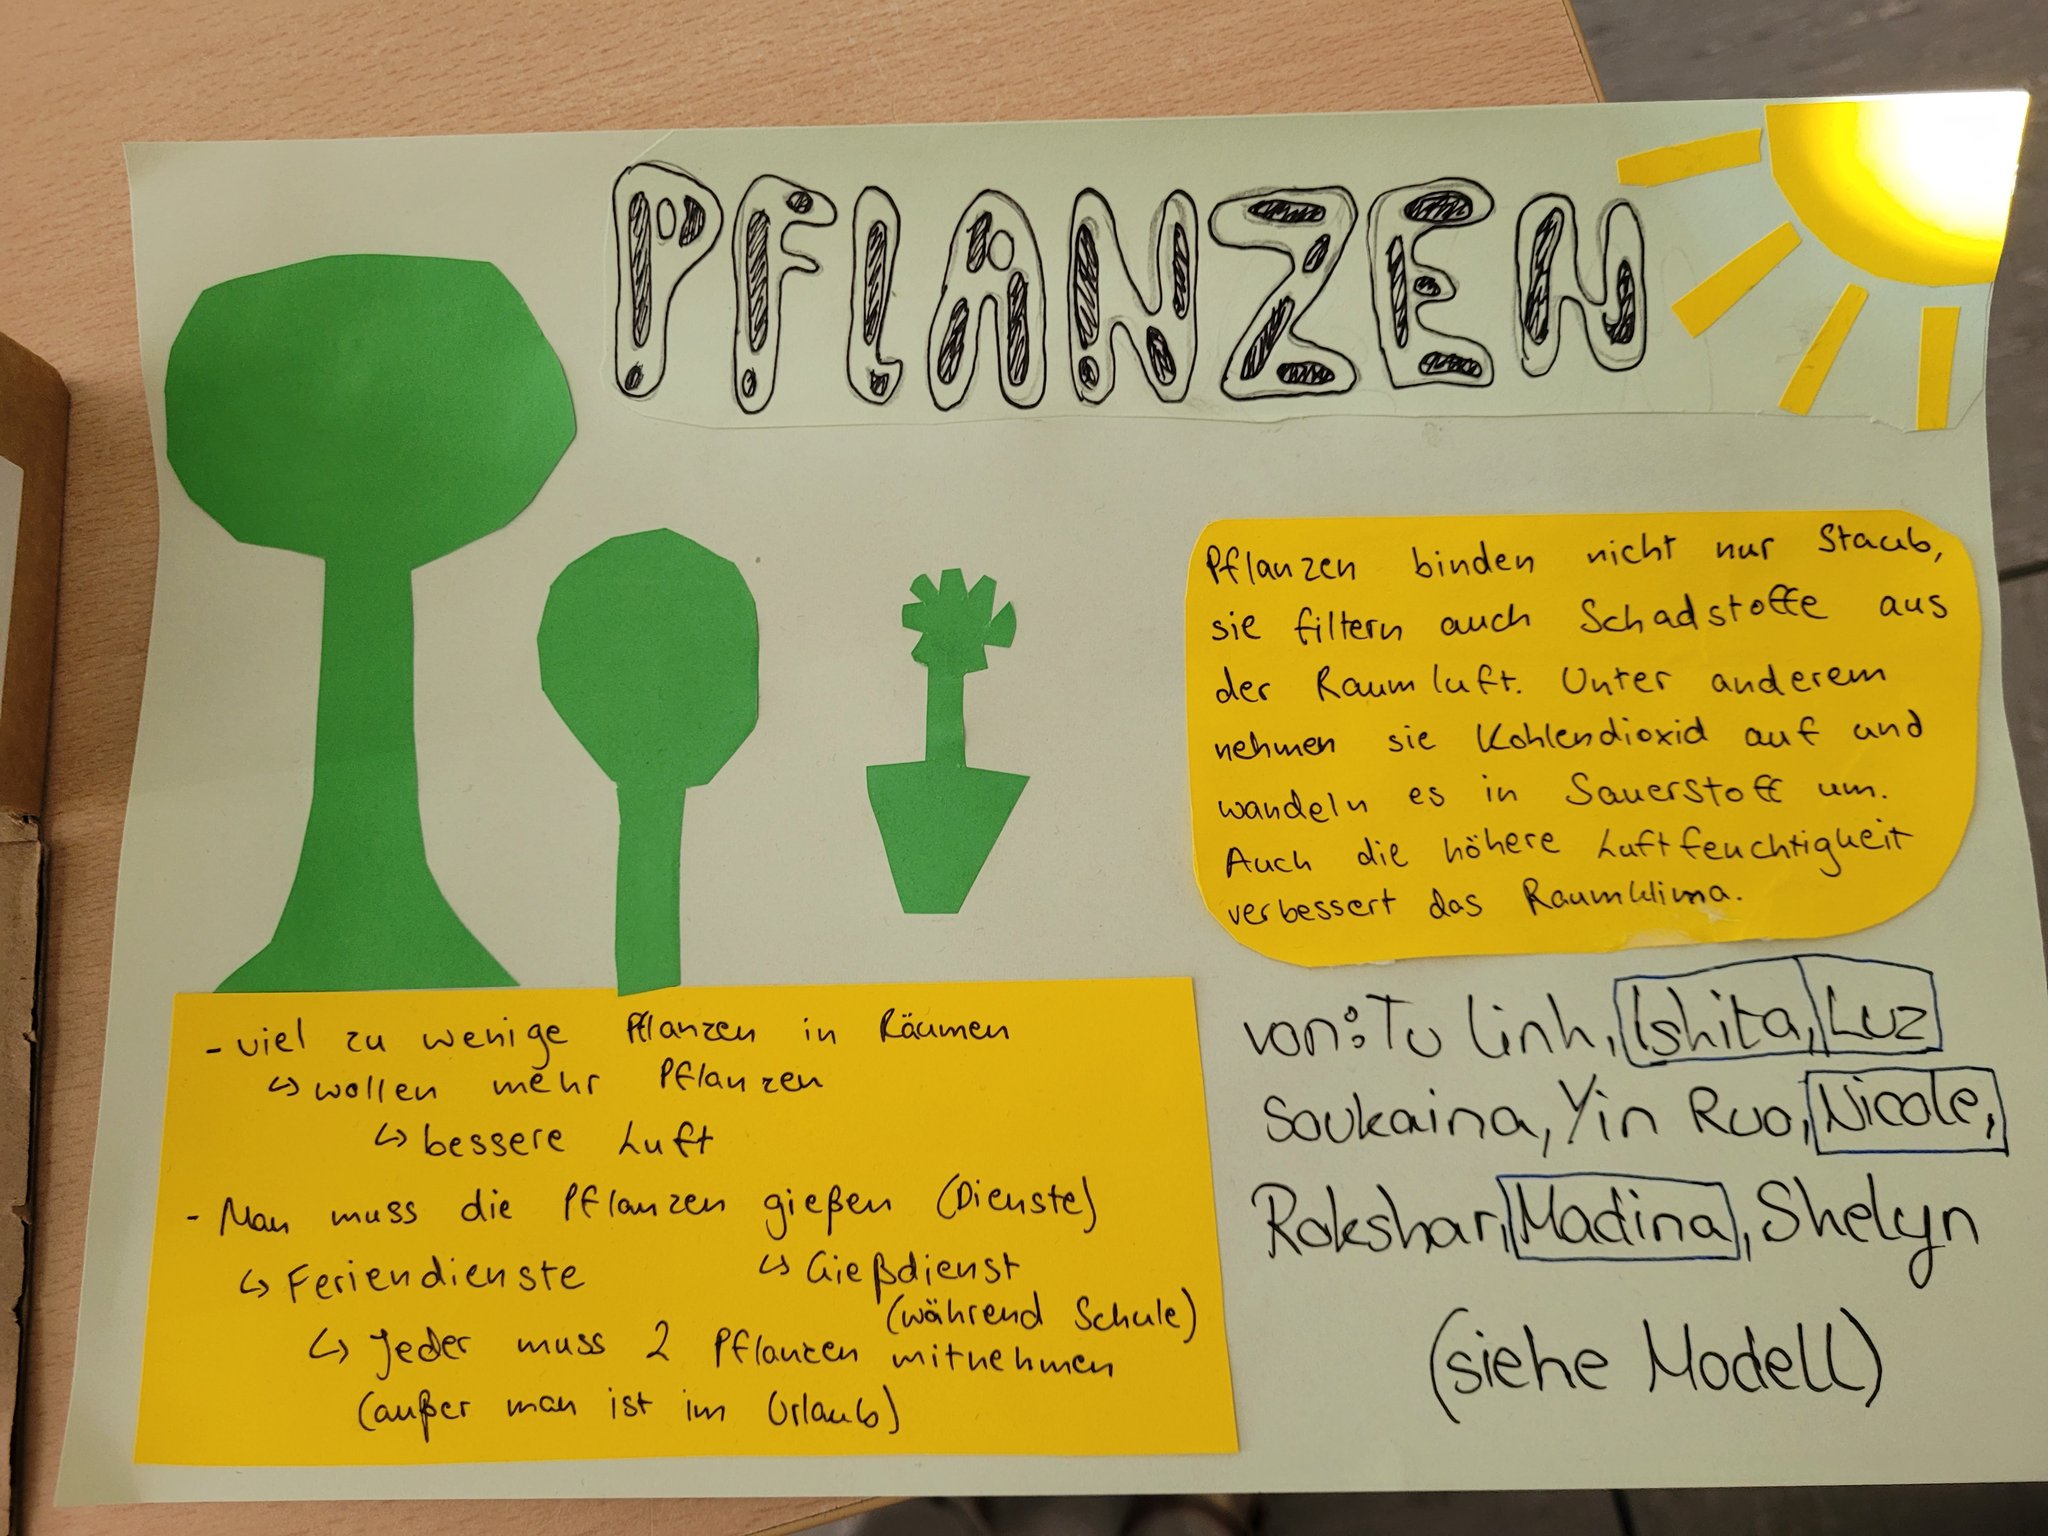 PFLANZEN
Pflanzen binden nicht nur Staub,
sie filtern auch Schadstoffe aus
der Raumluft. Unter anderem
nehmen sie Kohlendioxid auf und
wandeln es in Sauerstoff um.
Auch die höhere Luftfeuchtigkeit
verbessert das Raumklima.
- viel zu wenige Pflanzen in Räumen
↳ wollen mehr Pflanzen
↳ bessere Luft
- Man muss die Pflanzen gießen (Dienste)
↳ Feriendienste ↳ Gießdienst
(während Schule)
↳ Jeder muss 2 Pflanzen mitnehmen
(außer man ist im Urlaub)
von: Tu Linh, Ishita, Luz
Soukaina, Yin Ruo, Nicole,
Rokshar, Madina, Shelyn
(siehe Modell)